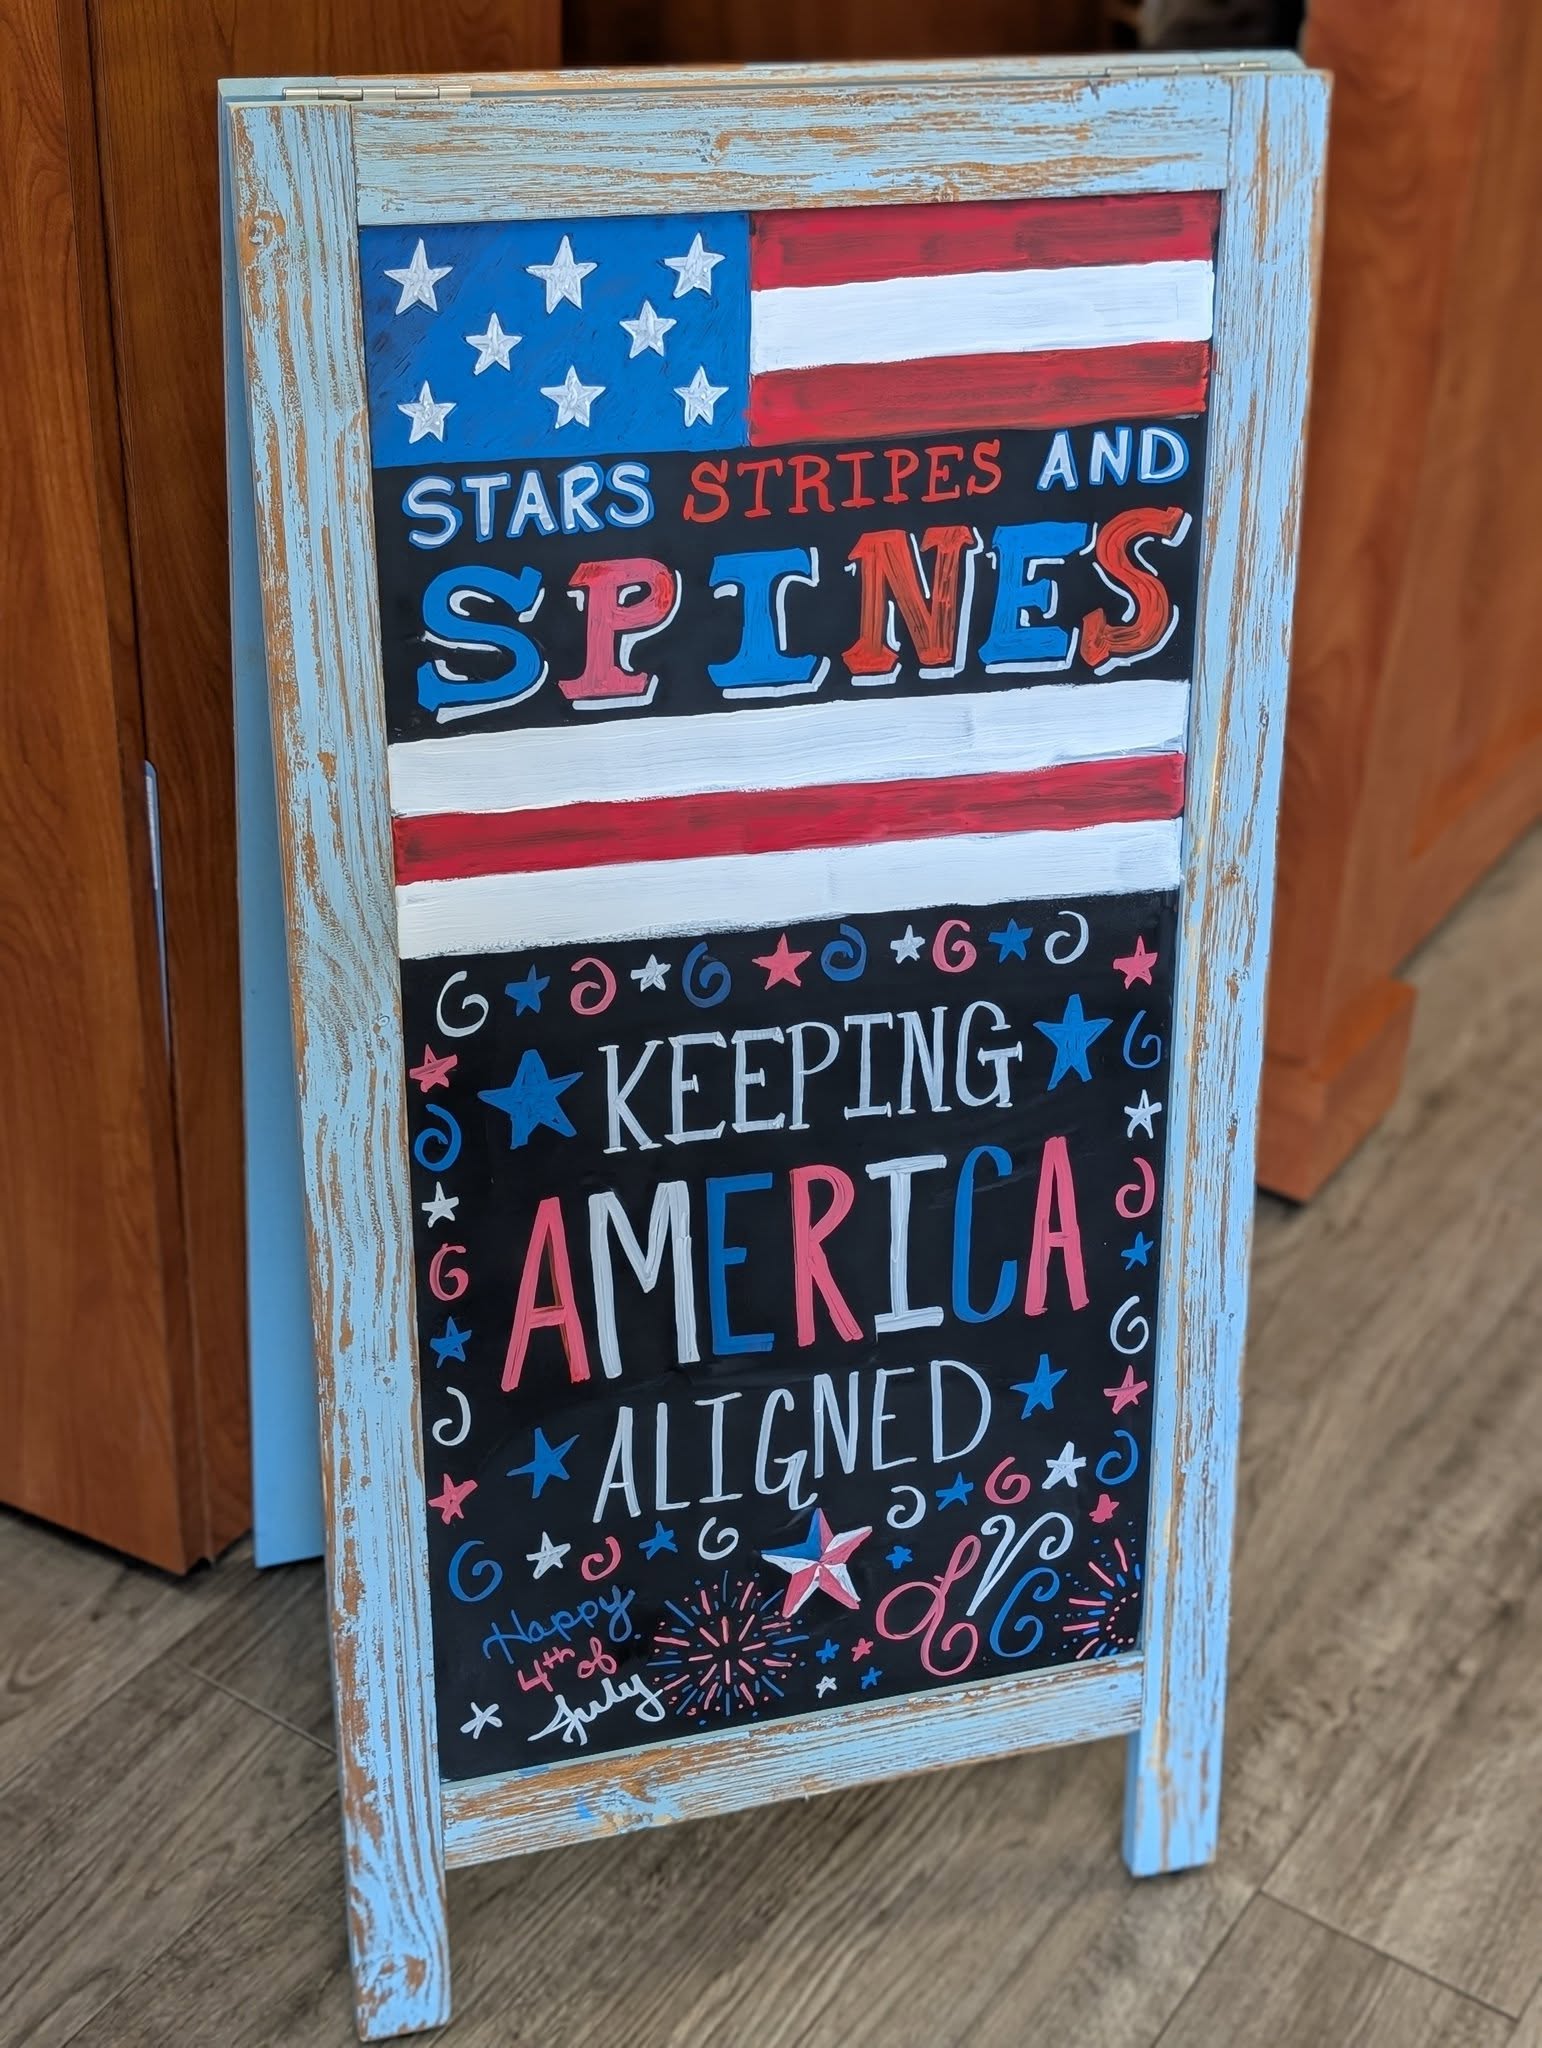 STARS STRIPES AND
SPINES
KEEPING
AMERICA
ALIGNED
Happy
4th of
July
LVC